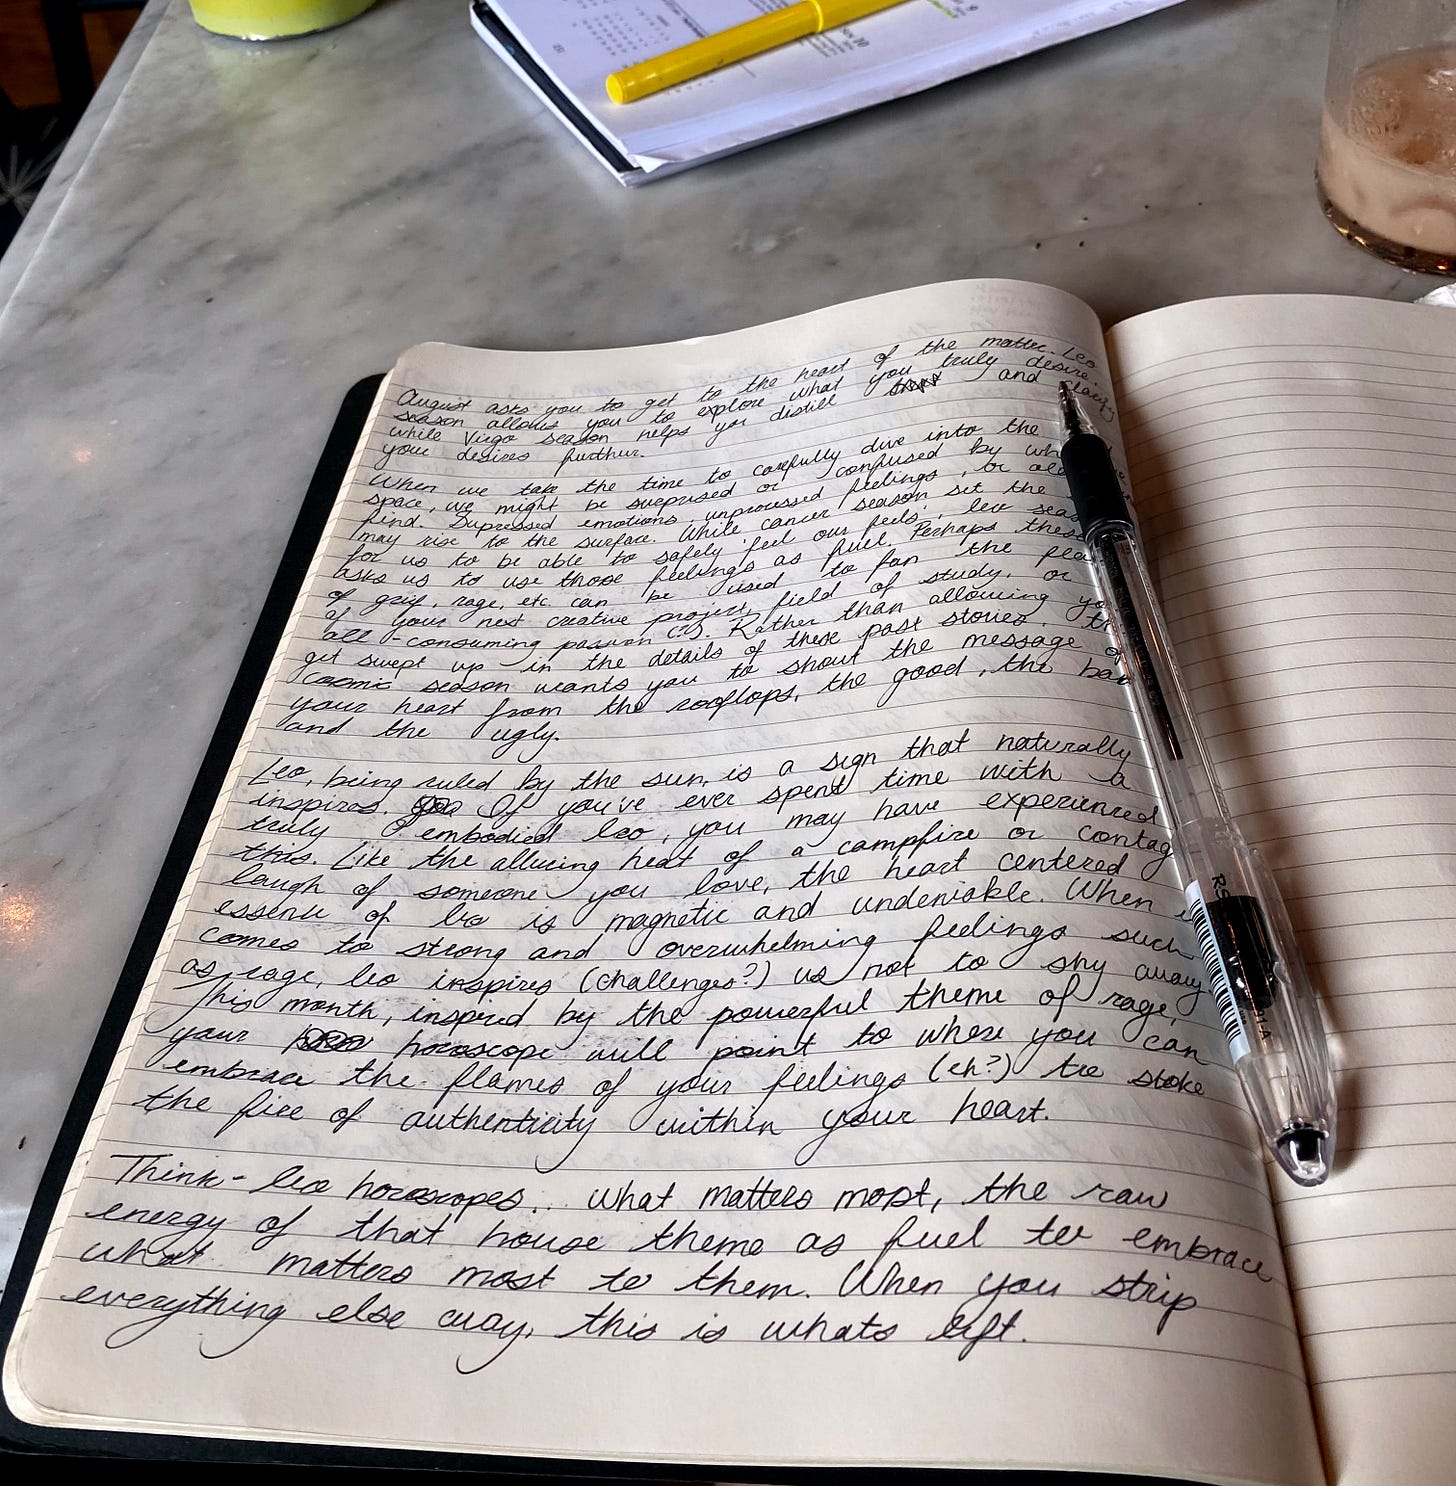 August asks you to get to the heart of the matter. Leo
season allows you to explore what you truly desire,
while Virgo season helps you distill and clarify
your desires further.
When we take the time to carefully dive into the
space, we might be surprised or confused by wh
find. Supressed emotions, unprocessed feelings, or
may rise to the surface. While cancer season set the
for us to be able to safely feel our feels, leo seas
asks us to use those feelings as fuel. Perhaps these
of grief, rage, etc. can be used to fan the fla
of your next creative project, field of study, or
all-consuming passion Rather than allowing yo
get swept up in the details of these past stories. Th
cosmic season wants you to shout the message of
your heart from the rooftops, the good, the bad
and the ugly.
Leo, being ruled by the sun, is a sign that naturally
inspires. If you've ever spent time with a
truly embodied leo, you may have experienced
this. Like the alluring heat of a campfire or contag
laugh of someone you love, the heart centered
essence of leo is magnetic and undeniable. When i
comes to strong and overwhelming feelings such
as rage, leo inspires (challenges?) us not to shy away
This month, inspired by the powerful theme of rage,
your horoscope will point to where you can
embrace the flames of your feelings (eh?) to stoke
the fire of authenticity within your heart.
Think - leo horoscopes... what matters most, the raw
energy of that house theme as fuel to embrace
what matters most to them. When you strip
everything else away, this is whats left.